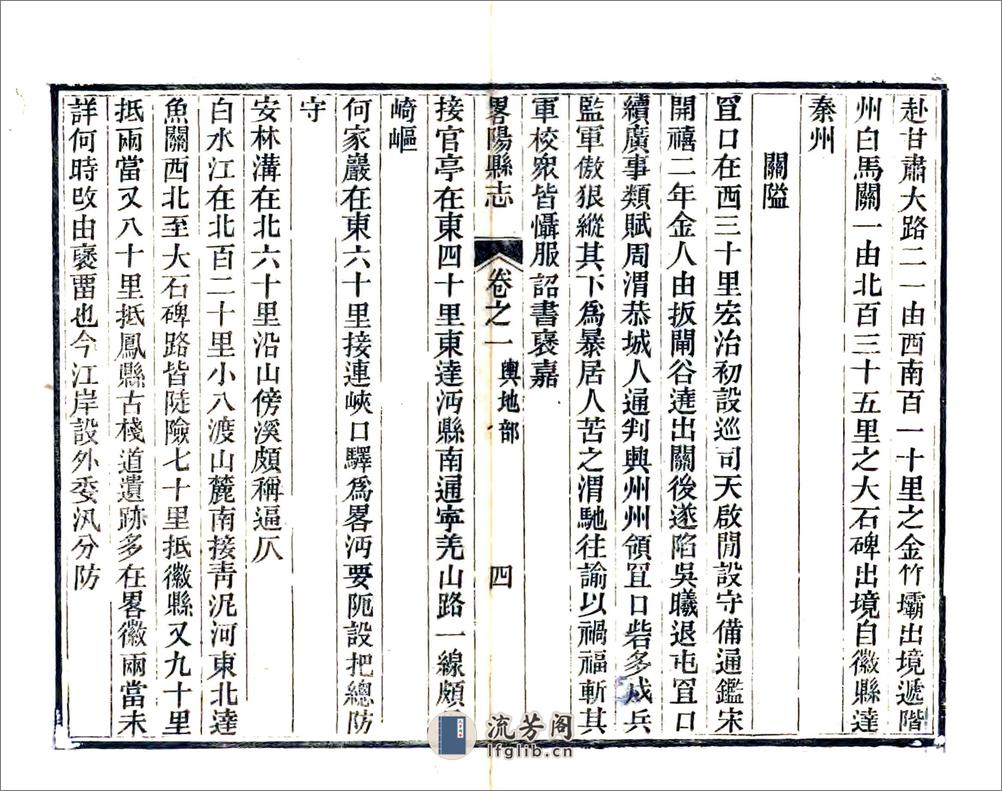 赴甘肅大路二一由西南百一十里之金竹壩出境遞階
州白馬關一由北百三十五里之大石碑出境自徽縣達
秦州
關隘
罝口在西三十里宏治初設巡司天啟閒設守備通鑑宋
開禧二年金人由扳閘谷遶出關後遂陷吳曦退屯罝口
續廣事類賦周渭恭城人通判興州州領罝口砦多戍兵
監軍傲狠縱其下為暴居人苦之渭馳往諭以禍福斬其
軍校衆皆懾服詔書褒嘉
畧陽縣志 卷之一 輿地部 四
接官亭在東四十里東達沔縣南通寧羌山路一線頗
崎嶇
何家巖在東六十里接連峽口驛為畧沔要阨設把總防
守
安林溝在北六十里沿山傍溪頗稱逼仄
白水江在北百二十里小八渡山麓南接靑泥河東北達
魚關西北至大石碑路皆陡險七十里抵徽縣又九十里
抵兩當又八十里抵鳳縣古棧道遺跡多在畧徽兩當未
詳何時改由褒畱也今江岸設外委汛分防
流芳阁
lfglib.cn